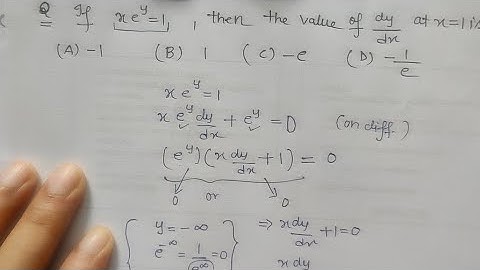 Q If x e^y = 1, then the value of dy/dx at x=1 is
(A) -1 (B) 1 (C) -e (D) -1/e
x e^y = 1
x e^y dy/dx + e^y = 0 (on diff.)
(e^y)(x dy/dx + 1) = 0
0 or 0
y = -∞ ⇒ x dy/dx + 1 = 0
e^-∞ = 1/e^∞ = 0 x dy